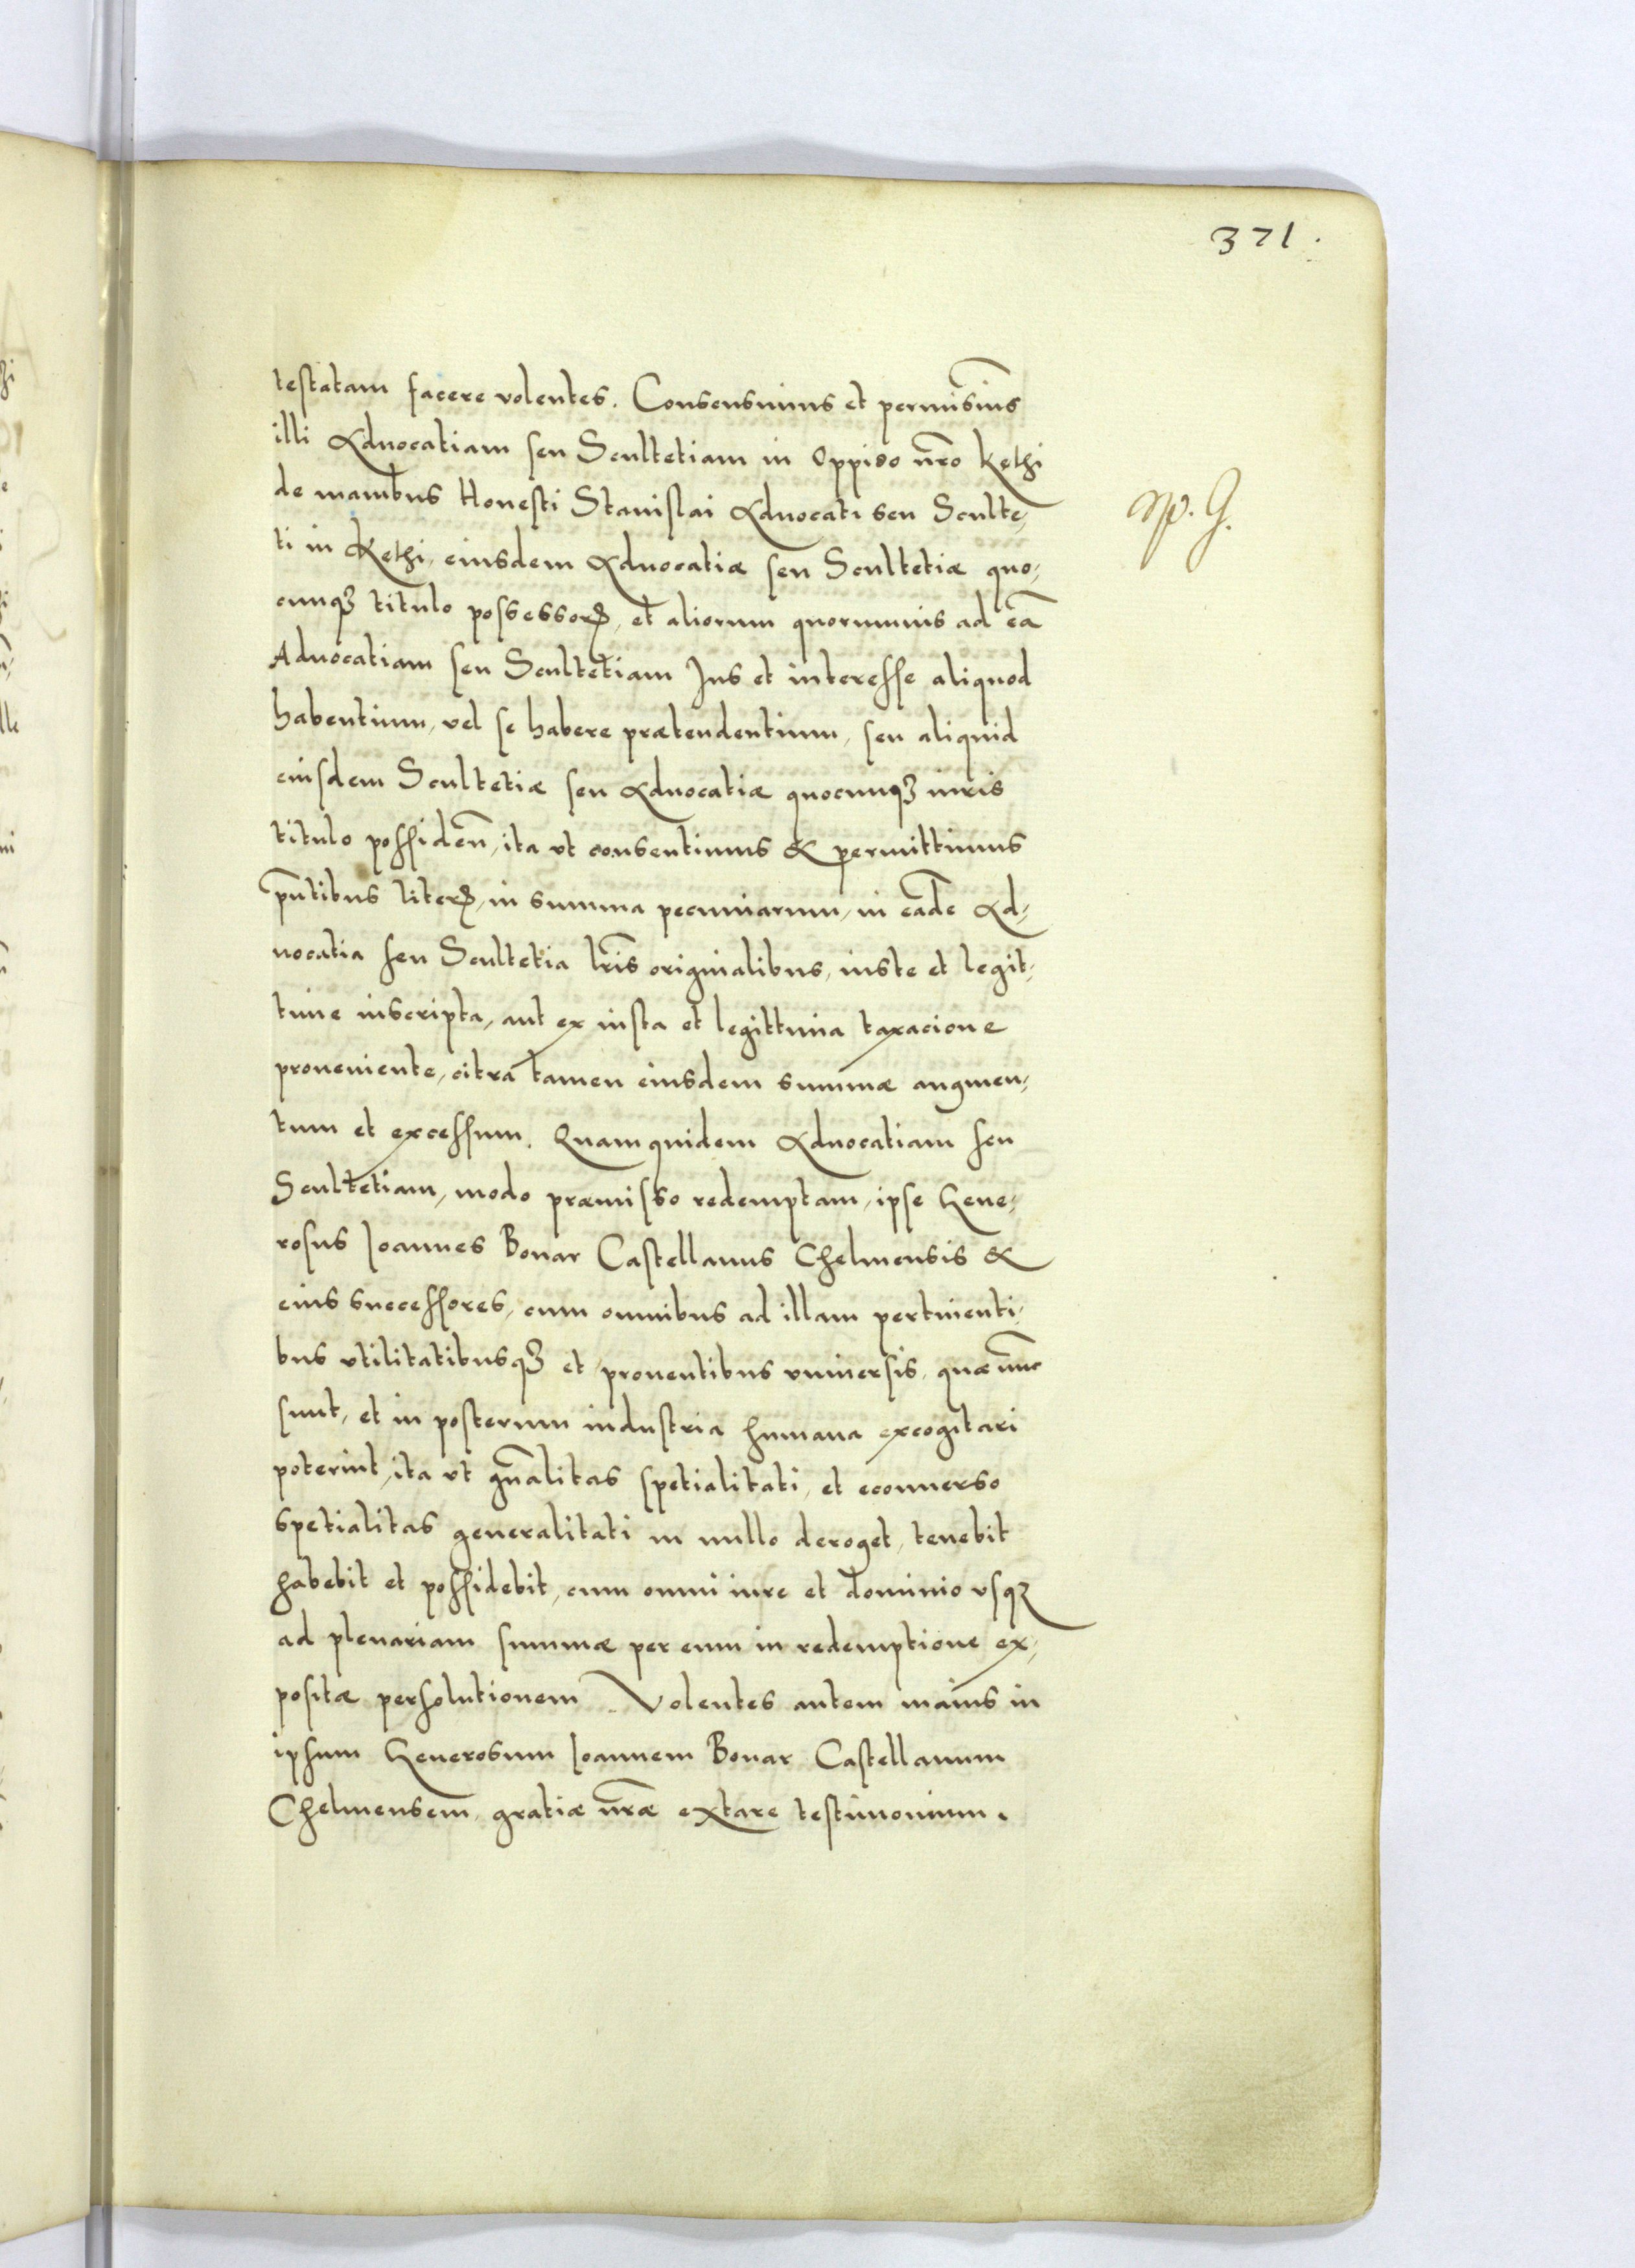 371.
testatam facere volentes. Consensimus et permisim̃us
illi Advocatiam seu Scultetiam in Oppido nr̃o Kethi
de manibus Honesti Stanislai Advocati seu Sculte-
ti in Kethi, eiusdem Advocatiæ seu Scultetiæ quo-
cunqꝫ titulo possessorꝝ, et aliorum quorumuis ad eã
Aduocatiam seu Scultetiam Jus et interesse aliquod
habentium, vel se habere prætendentium, seu aliquid
eiusdem Scultetiæ seu Aduocatiæ quocunqꝫ iuris
titulo possideñ, ita vt consentimus & permittimus
pñtibus literꝝ, in summa pecuniarum, in eadẽ Ad-
uocatia seu Scultetia lr̃is originalibus, iuste et legit-
time inscripta, aut ex iusta et legittima taxacione
proueniente, citra tamen eiusdem summæ augmen-
tum et excessum. Quamquidem Aduocatiam seu
Scultetiam, modo præmisso redemptam, ipse Gene-
rosus Joannes Bonar Castellanus Chelmensis &
eius successores, cum omnibus ad illam pertinenti-
bus vtilitatibusqꝫ et prouentibus vniuersis, quæ nunc
sunt, et in posterum industria humana excogitari
poterint, ita vt gñalitas spetialitati, et econuerso
spetialitas generalitati in nullo deroget, tenebit
habebit et possidebit, cum omni iure et dominio vsqꝫ
ad plenariam summæ per eum in redemptione ex-
positæ persolutionem. Volentes autem maius in
ipsum Generosum Joannem Bonar Castellanum
Chelmensem, gratiæ nr̃æ extare testimonium.